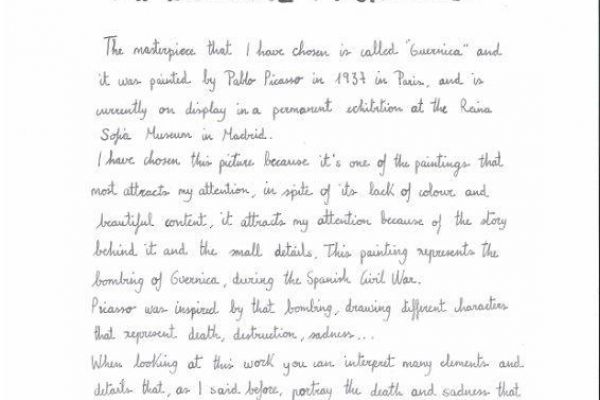 The masterpiece that I have chosen is called "Guernica" and
it was painted by Pablo Picasso in 1937 in Paris, and is
currently on display in a permanent exhibition at the Reina
Sofía Museum in Madrid.
I have chosen this picture because it's one of the paintings that
most attracts my attention, in spite of its lack of colour and
beautiful content, it attracts my attention because of the story
behind it and the small details. This painting represents the
bombing of Guernica, during the Spanish Civil War.
Picasso was inspired by that bombing, drawing different characters
that represent death, destruction, sadness...
When looking at this work you can interpret many elements and
details that, as I said before, portray the death and sadness that